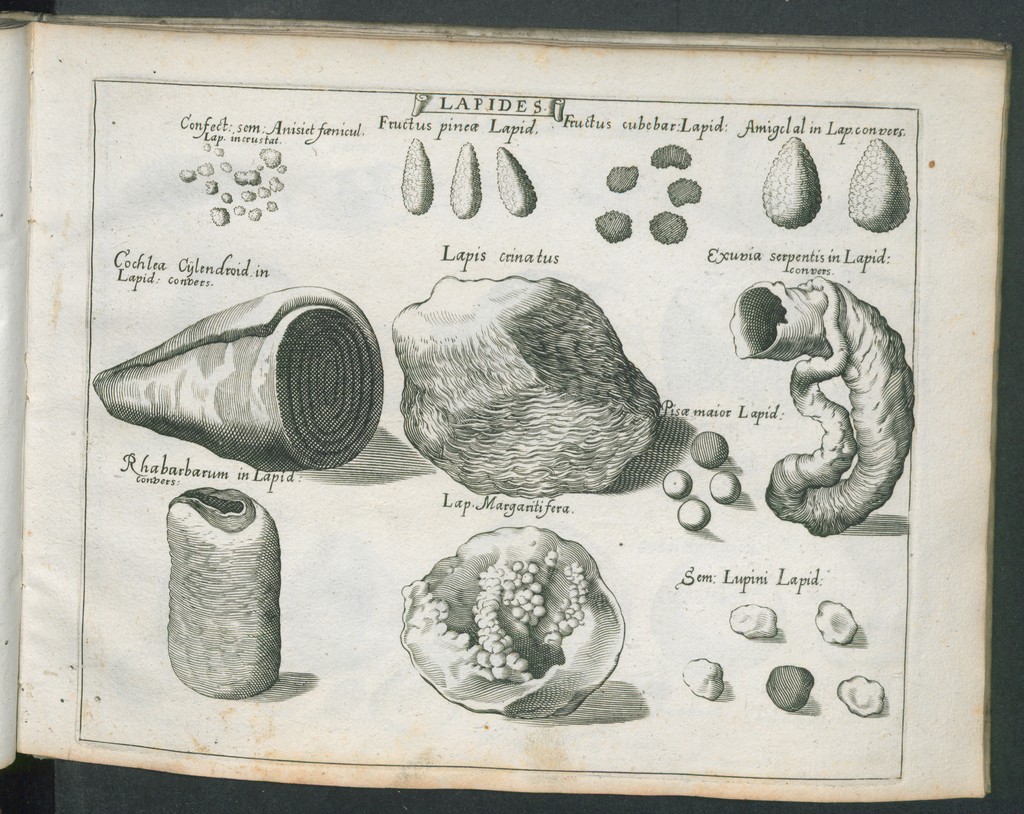 LAPIDES.
Confect: sem: Anisi et fœnicul.
Lap. incrustat.
Fructus pineæ Lapid.
Fructus cubebar: Lapid:
Amigdal in Lap. convers.
Cochlea Cÿlendroid. in
Lapid: convers.
Lapis crinatus
Exuvia serpentis in Lapid:
convers.
Pisæ maior Lapid:
Rhabarbarum in Lapid:
convers:
Lap. Margaritifera.
Sem: Lupini Lapid: